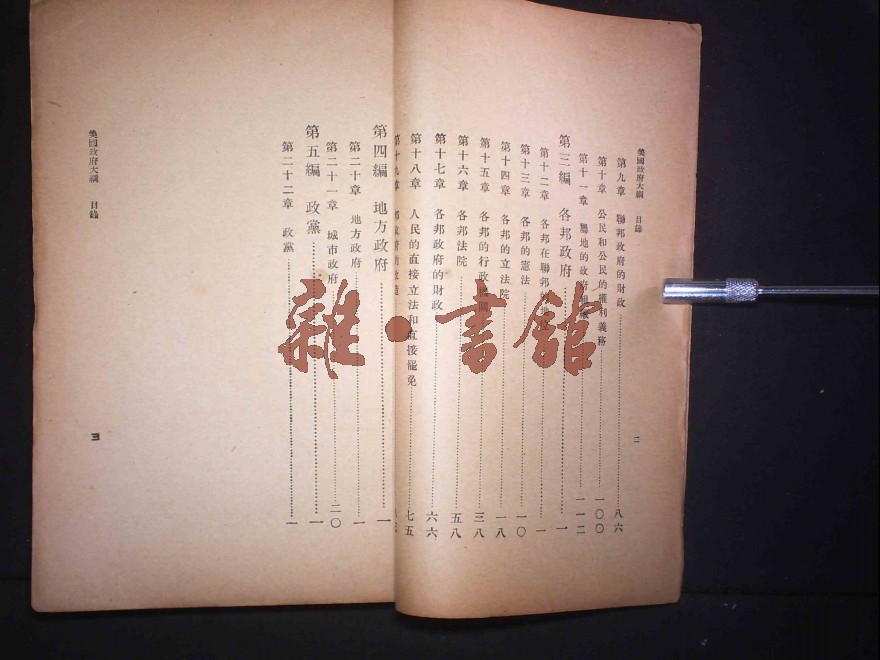 美國政府大綱 目錄
第九章 聯邦政府的財政 八六
第十章 公民和公民的權利義務 一〇〇
第十一章 屬地的政府組織 一一二
第三編 各邦政府 一
第十二章 各邦在聯邦的地位 一
第十三章 各邦的憲法 一〇
第十四章 各邦的立法院 一八
第十五章 各邦的行政機關 三八
第十六章 各邦法院 五八
第十七章 各邦政府的財政 六六
第十八章 人民的直接立法和直接罷免 七五
第十九章 政府的改造
二
第四編 地方政府 一
第二十章 地方政府 一
第二十一章 城市政府 二〇
第五編 政黨 一
第二十二章 政黨 一
美國政府大綱 目錄
三
雜·書館